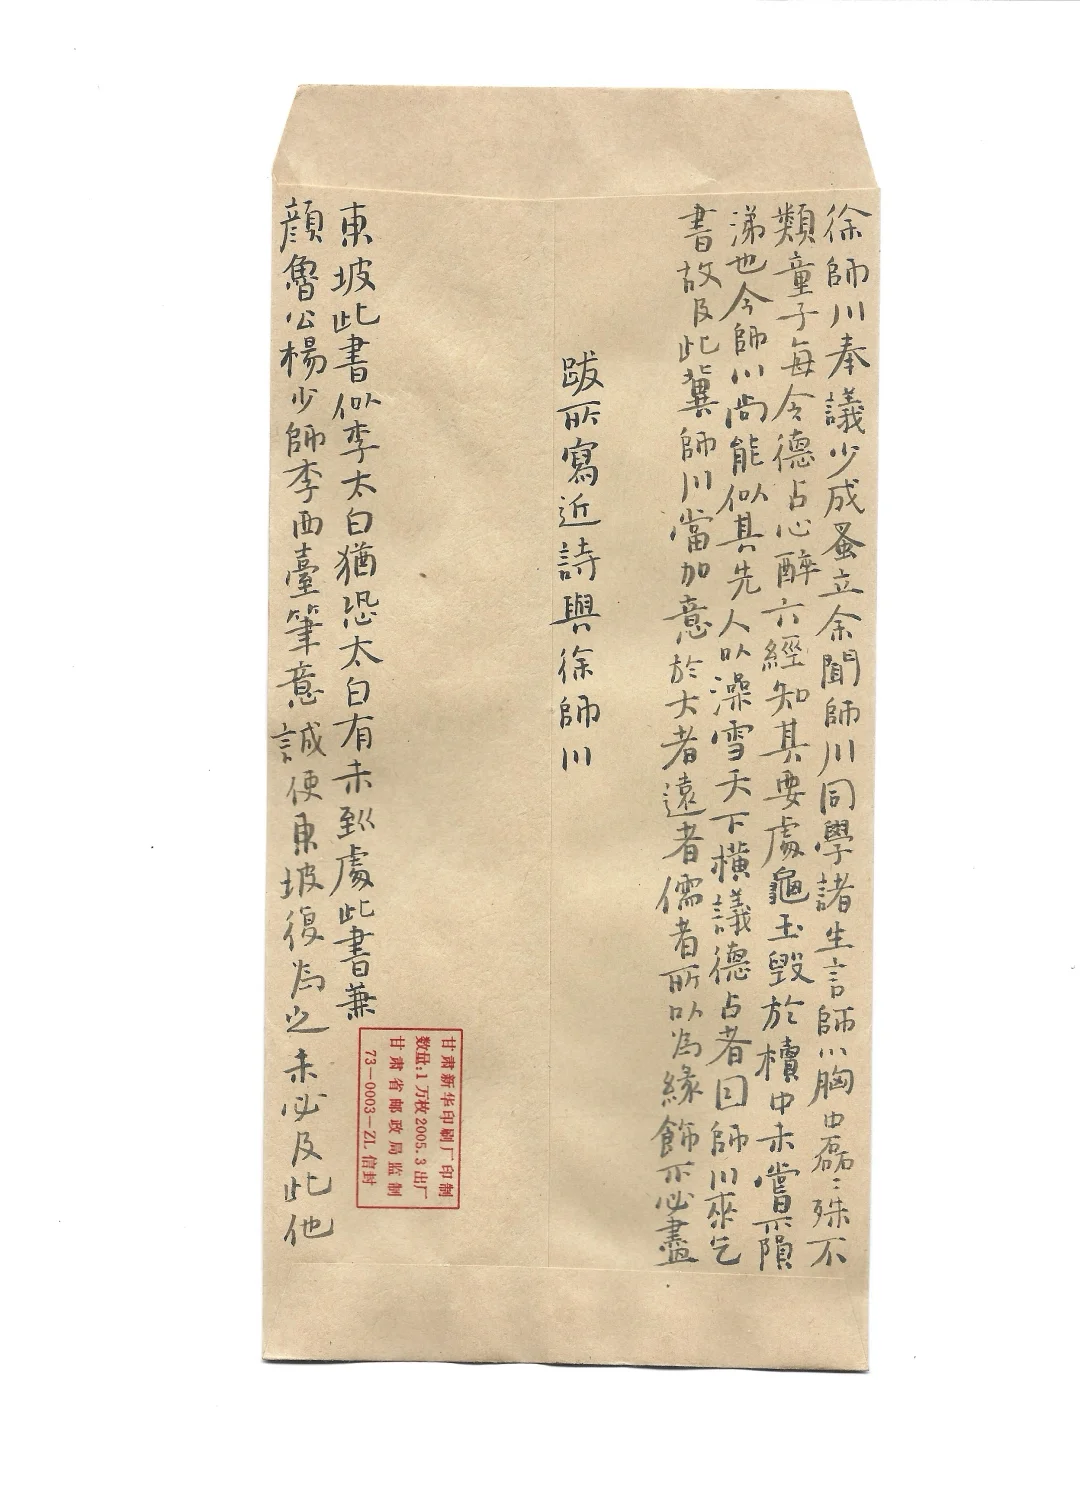 徐師川奉議少成蚤立余聞師川同學諸生言師川胸中磊〻殊不
類童子每令德占心醉六經知其要處龜玉毀於櫝中未嘗不隕
涕也今師川尚能似其先人以澡雪天下橫議德占者因師川來乞
書故及此冀師川當加意於大者遠者儒者所以為緣飾不必盡
跋所寫近詩與徐師川
東坡此書似李太白猶恐太白有未到處此書兼
顔魯公楊少師李西臺筆意誠使東坡復為之未必及此他
甘肃新华印刷厂印制
数量:1万枚2005.3出厂
甘肃省邮政局监制
73-0003-ZL信封